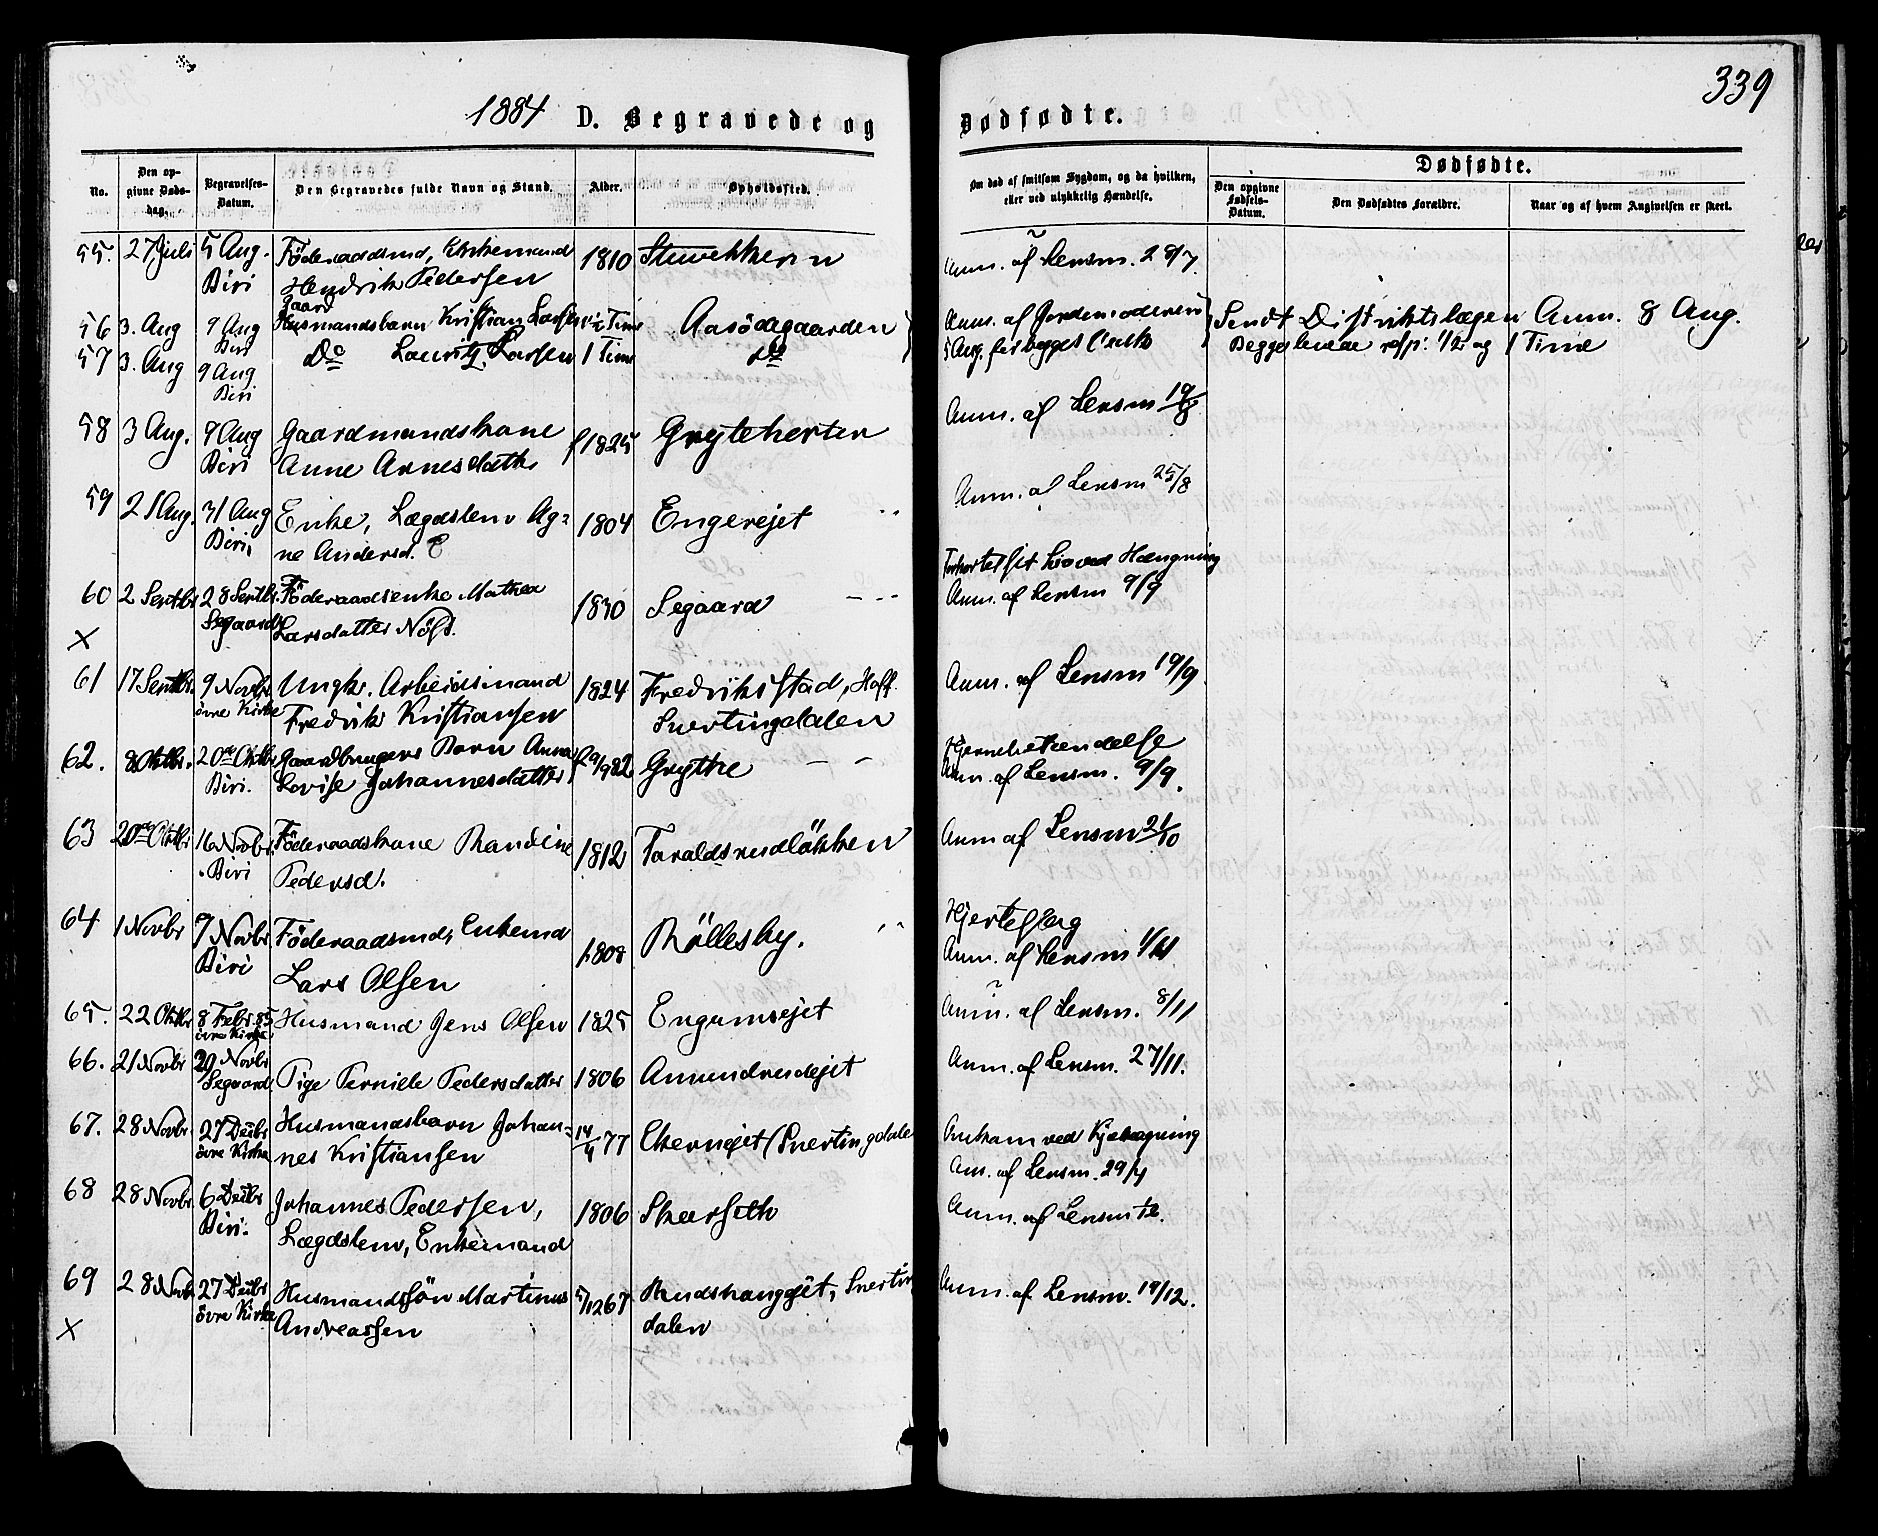 1884 D. Begravede og Dødfødte.
339
No.
Den opgivne Døds-dag.
Begravelses-Datum.
Den Begravedes fulde Navn og Stand.
Alder.
Opholdssted.
Om død af smitsom Sygdom, og da hvilken, eller ved ulykkelig Hændelse.
Dødfødte.
Den opgivne Fødsels-Datum.
Den Dødfødtes Forældre.
Naar og af hvem Angivelsen er skeet.
55. 27 Juli 5 Aug. Föderaadsmd, Enkemand 1810 Anm. af Lensm. 28/7.
Biri Hendrik Pedersen
Gaard
56 3. Aug 9 Aug Husmandsbarn Kristian Larsen 1/2 Time Aasödegaarden Anm. af Jordemoderen Sendt Distriktslægen Anm. 8 Aug.
Biri
57 3. Aug 9 Aug Do Lauritz Larsen 1 Time do 5 Aug. Begge levede resp. 1/2 og 1 Time
Biri
58 3 Aug. 9 Aug Gaardmandskone f 1825 Anm. af Lensm 19/8
Biri Anne Arnesdatter
59 21 Aug. 31 Aug Enke, Lægdslem Ag= 1804 Engerejet Anm. af Lensm 25/8
Biri. ne Andersd.
Forkortet sit Liv ved Hængning
60 2 Septbr 28 Septbr. Föderaadsenke Mathea 1830 Segaard Anm. af Lensm 9/9
× Segaard Larsdatter
61 17 Septbr. 9 Novbr. Ungk. Arbeidsmand 1824 Fredrikstad, Hoff. Anm. af Lensm 19/9.
övre Kirke Fredrik Kristiansen Snertingdalen
Hjernebetændelse
62. 8 Oktbr. 20de Oktbr Gaardbrugers Barn Anna f 9/9 82 Grythe Anm. af Lensm. 9/9.
Biri. Lovise Johannesdatter
63 20de Oktbr 16 Novbr. Föderaadskone Randine 1812 Taraldsrudlökken Anm af Lensm 21/10
Biri Pedersd.
Hjerteslag
64 1 Novbr 9 Novbr Föderaadsmd, Enkemd 1808 Röllesby. Anm. af Lensm 1/11
Biri Lars Olsen
65. 22 Oktbr 8 Febr. 85 Husmand Jens Olsen 1825 Engumsejet Anm. af Lensm. 8/11
övre Kirke
66. 21 Novbr 30 Novbr Pige Pernille Pedersdatter 1806 Amundrudejet Anm. af Lensm. 27/11.
Segaard
67. 28 Novbr. 27 Decbr Husmandsbarn Johan= 14/4 77 (Snertingdalen Omkom ved Kjælkagning
övre Kirke nes Kristiansen Anm. af Lensm. 29/11
68 28 Novbr. 6 Decbr Johannes Pedersen, 1806 Skarseth Anm. af Lensm
Biri. Lægdslem, Enkemand
69 28 Novbr 27 Decbr Husmandssön Martinus 5/12 67 Anm. af Lensm. 19/12.
× övre Kirke Andreassen dalen